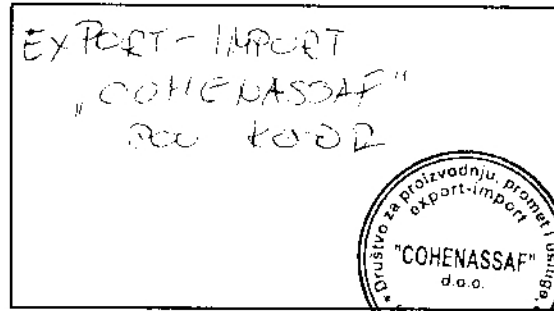 EXPORT-IMPORT
„COHENASSAF"
DOO
* Društvo za proizvodnju, promet i usluge,
export-import
"COHENASSAF"
d.o.o.